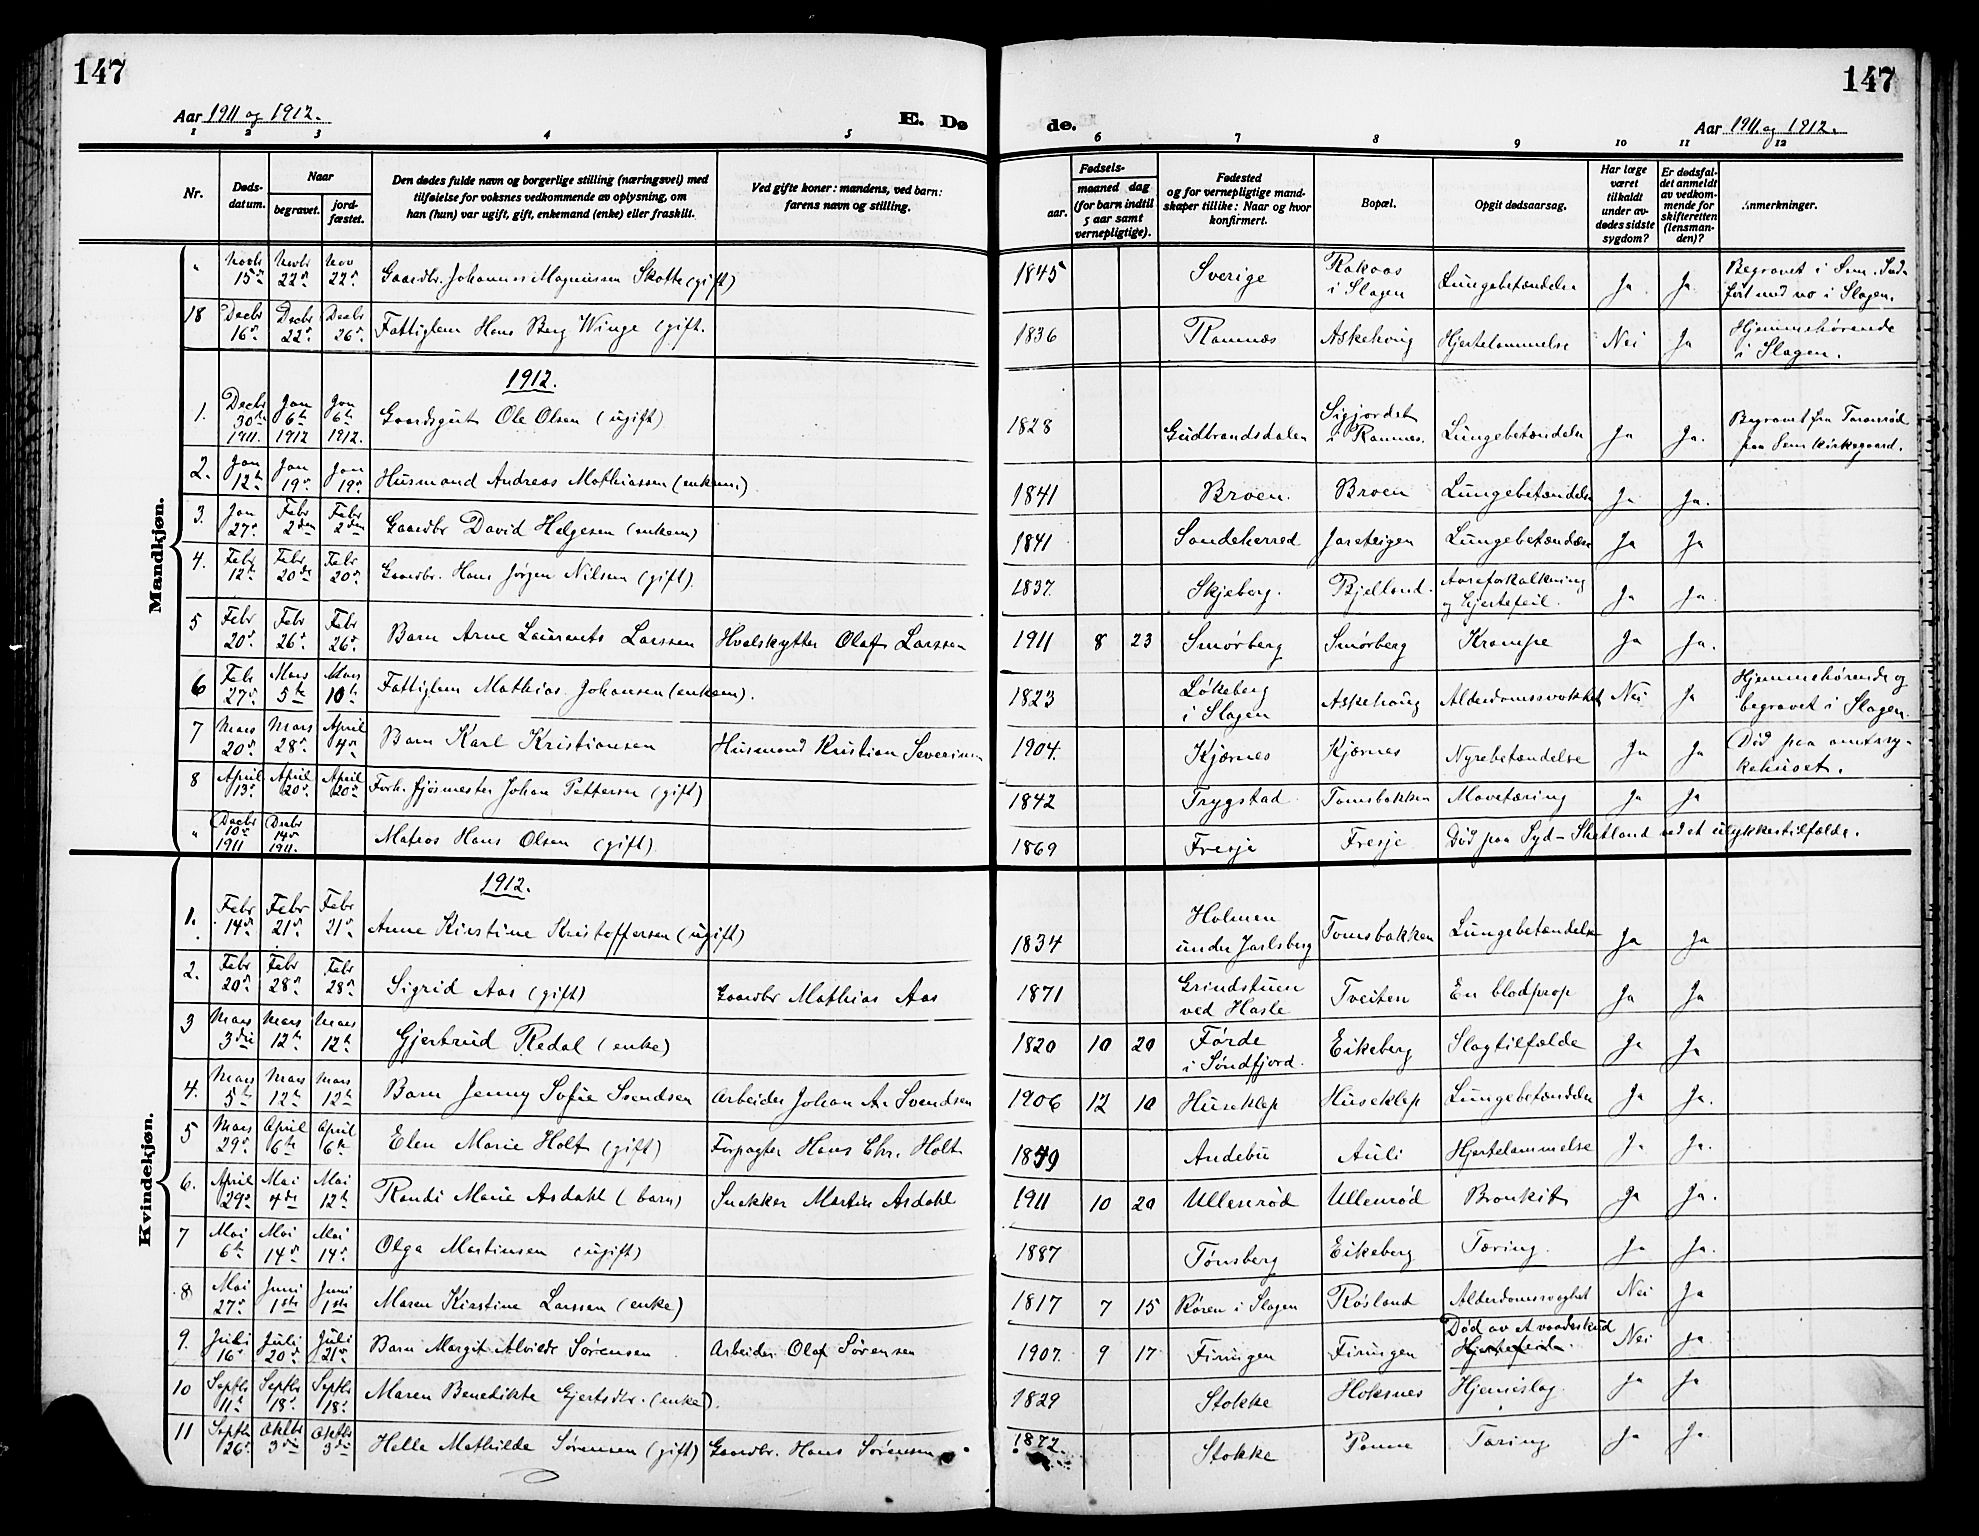 147
147
Aar 1911 og 1912.
E. Dø
de.
Aar 1911 og 1912.
1 2 3 4 5 6 7 8 9 10 11 12
Nr.
Døds-
datum.
Naar
begravet.
jord-
fæstet.
Den dødes fulde navn og borgerlige stilling (næringsvei) med
tilføielse for voksnes vedkommende av oplysning, om
han (hun) var ugift, gift, enkemand (enke) eller fraskilt.
Ved gifte koner: mandens, ved barn:
farens navn og stilling.
Fødsels-
aar.
maaned dag
(for barn indtil
5 aar samt
vernepligtige).
Fødested
og for vernepligtige mand-
skaper tillike: Naar og hvor
konfirmert.
Bopæl.
Opgit dødsaarsag.
Har læge
været
tilkaldt
under av-
dødes sidste
sygdom?
Er dødsfal-
det anmeldt
av vedkom-
mende for
skifteretten
(lensman-
den)?
Anmerkninger.
Mandkjøn.
" Novbr 15de Novbr 22de Nov 22de Gaardbr. Johannes Magnussen Skatte (gift) 1845 Sverige Rakaas i Slagen Lungebetændelse Ja Ja Begravet i Sem. Ind-
ført med no i Slagen.
18 Decbr 16de Decbr 22de Decbr 26de Fattiglem Hans Berg Winge (gift. 1836 Ramnæs Askehoug Hjertelammelse Nei Ja Hjemmehørende
i Slagen.
1912.
1. Decbr 30te 1911. Jan 6te 1912 Jan 6te 1912. Gaardsgut Ole Olsen (ugift) 1828 Gudbrandsdalen i Ramnes. Lungebetændelse Ja Ja. Begravet fra
paa Sem kirkegaard.
2. Jan 12te Jan 19de Jan 19de Husmand Andreas Mathiassen (enkem.) 1841 Broen. Broen Lungebetændelse Ja Ja.
3. Jan 27de Febr 2den Febr 2den Gaardbr David Helgesen (enkem) 1841 Sandeherred Jareteigen Lungebetændelse Ja Ja
4. Febr 12te Febr 20de Febr 20de Gaardbr. Hans Jørgen Nilsen (gift). 1837. Skjeberg. Bjelland. Aareforkalkning
og hjertefeil. Ja Ja.
5 Febr 20de Febr 26de Febr 26de Barn Arne Laurents Larssen Hvalskytter Olaf Larssen 1911 8 23 Smørberg Smørberg Krampe Ja Ja.
6 Febr 27de Mars 5te Mars 10te Fattiglem Mathias Johansen (enkem). 1823 Løkeberg
i Slagen Askehoug Alderdomssvakhet Nei Ja Hjemmehørende og
begravet i Slagen.
7 Mars 20de Mars 28de April 4de Barn Karl Kristiansen Husmand Kristian Severinsen 1904. Kjærnes Kjærnes Nyrebetændelse Ja Ja Død paa amtssy-
kehuset.
8 April 13de April 20de April 20de Forh. fjøsmester Johan Pettersen (gift) 1842 Trygstad Tomsbakken Mavetæring Ja Ja
" Decbr 10de 1911 Decbr 14de 1911. Matros Hans Olsen (gift) 1869 Fresje Fresje Død paa Syd-Shetland ved et ulykkestilfælde.
Kvindekjøn.
1912.
1. Febr 14de Febr 21de Febr 21de Anne Kirstine Kristoffersen (ugift) 1834 Holmen
under Jarlsberg Tomsbakken Lungebetændelse Ja Ja
2. Febr 20de Febr 28de Febr 28de Sigrid Aas (gift) Gaardbr Mathias Aas 1871 Grindstuen
ved Hasle Tveiten En blodprop Ja Ja
3 Mars 3die Mars 12te Mars 12te Gjertrud Redal (enke) 1820 10 20 Førde
i Søndfjord. Eikeberg Slagtilfælde Ja Ja
4. Mars 5te Mars 12te Mars 12te Barn Jenny Sofie Svendsen Arbeider Johan A. Svendsen 1906 12 10 Huseklep Huseklep Lungebetændelse Ja Ja.
5 Mars 29de April 6te April 6te Elen Marie Holt (gift) Forpagter Hans Chr. Holt 1849 Andebu Auli Hjertelammelse Ja Ja.
6. April 29de Mai 4de Mai 12te Randi Marie Asdahl (barn) Snekker Martin Asdahl 1911 10 20 Ullenrød Ullenrød Bronkit Ja Ja.
7 Mai 6te Mai 14de Mai 14de Olga Martinsen (ugift) 1887 Tønsberg Eikeberg Tæring. Ja Ja.
8 Mai 27de Juni 1ste Juni 1ste Maren Kirstine Larssen (enke) 1817 7 15 Røren i Slagen Røsland Alderdomssvaghet Nei Ja
9. Juli 16de Juli 20de Juli 21de Barn Margit Alvilde Sørensen Arbeider Olaf Sørensen 1907. 9 17 Firingen Firingen Død av et vaadeskud
Hjertefeil. Nei Ja
10 Septbr 11te Septbr 18de Septbr 18de Maren Benedikte Gjertsdtr. (enke). 1829 Stokke Hoksnes Hjerneslag. Ja Ja
11 Septbr 26de Oktbr 3die Oktbr 3die Helle Mathilde Sørensen (gift) Gaardbr. Hans Sørensen 1872. Stokke Tæring Ja Ja.